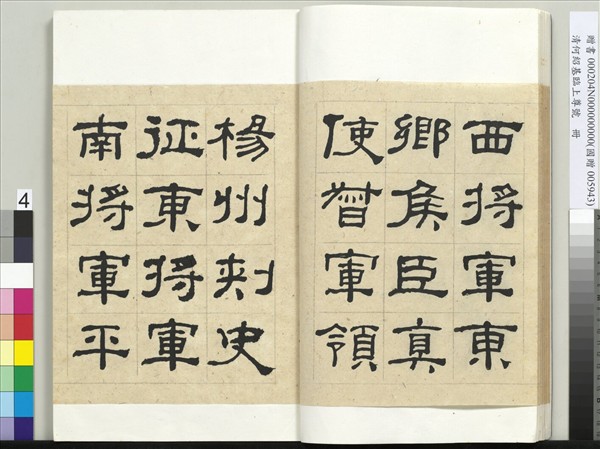 西將軍東
鄉侯臣真
使督軍領
楊州刺史
征東將軍
南將軍平
贈書 000204N000000000(國贈 005943)
清何紹基臨上尊號 冊
4